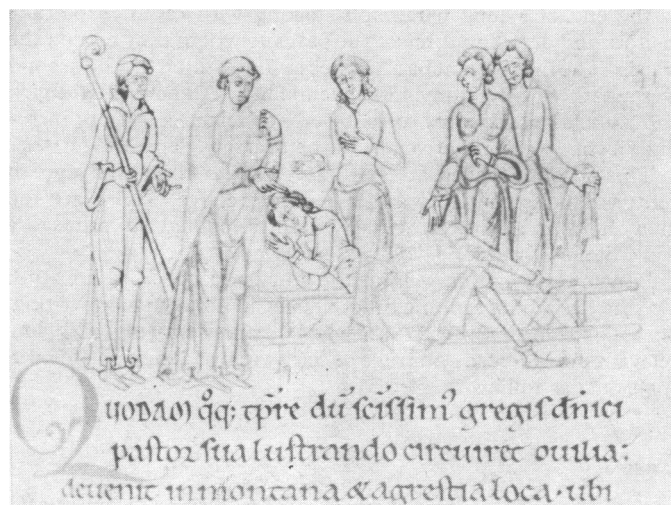 QUODAM q̄q; tp̄re dū sc̄issim᾽ gregis dn̄ici
pastor sua lustrando circuiret ouilia;
deuenit in montana & agrestia loca · ubi